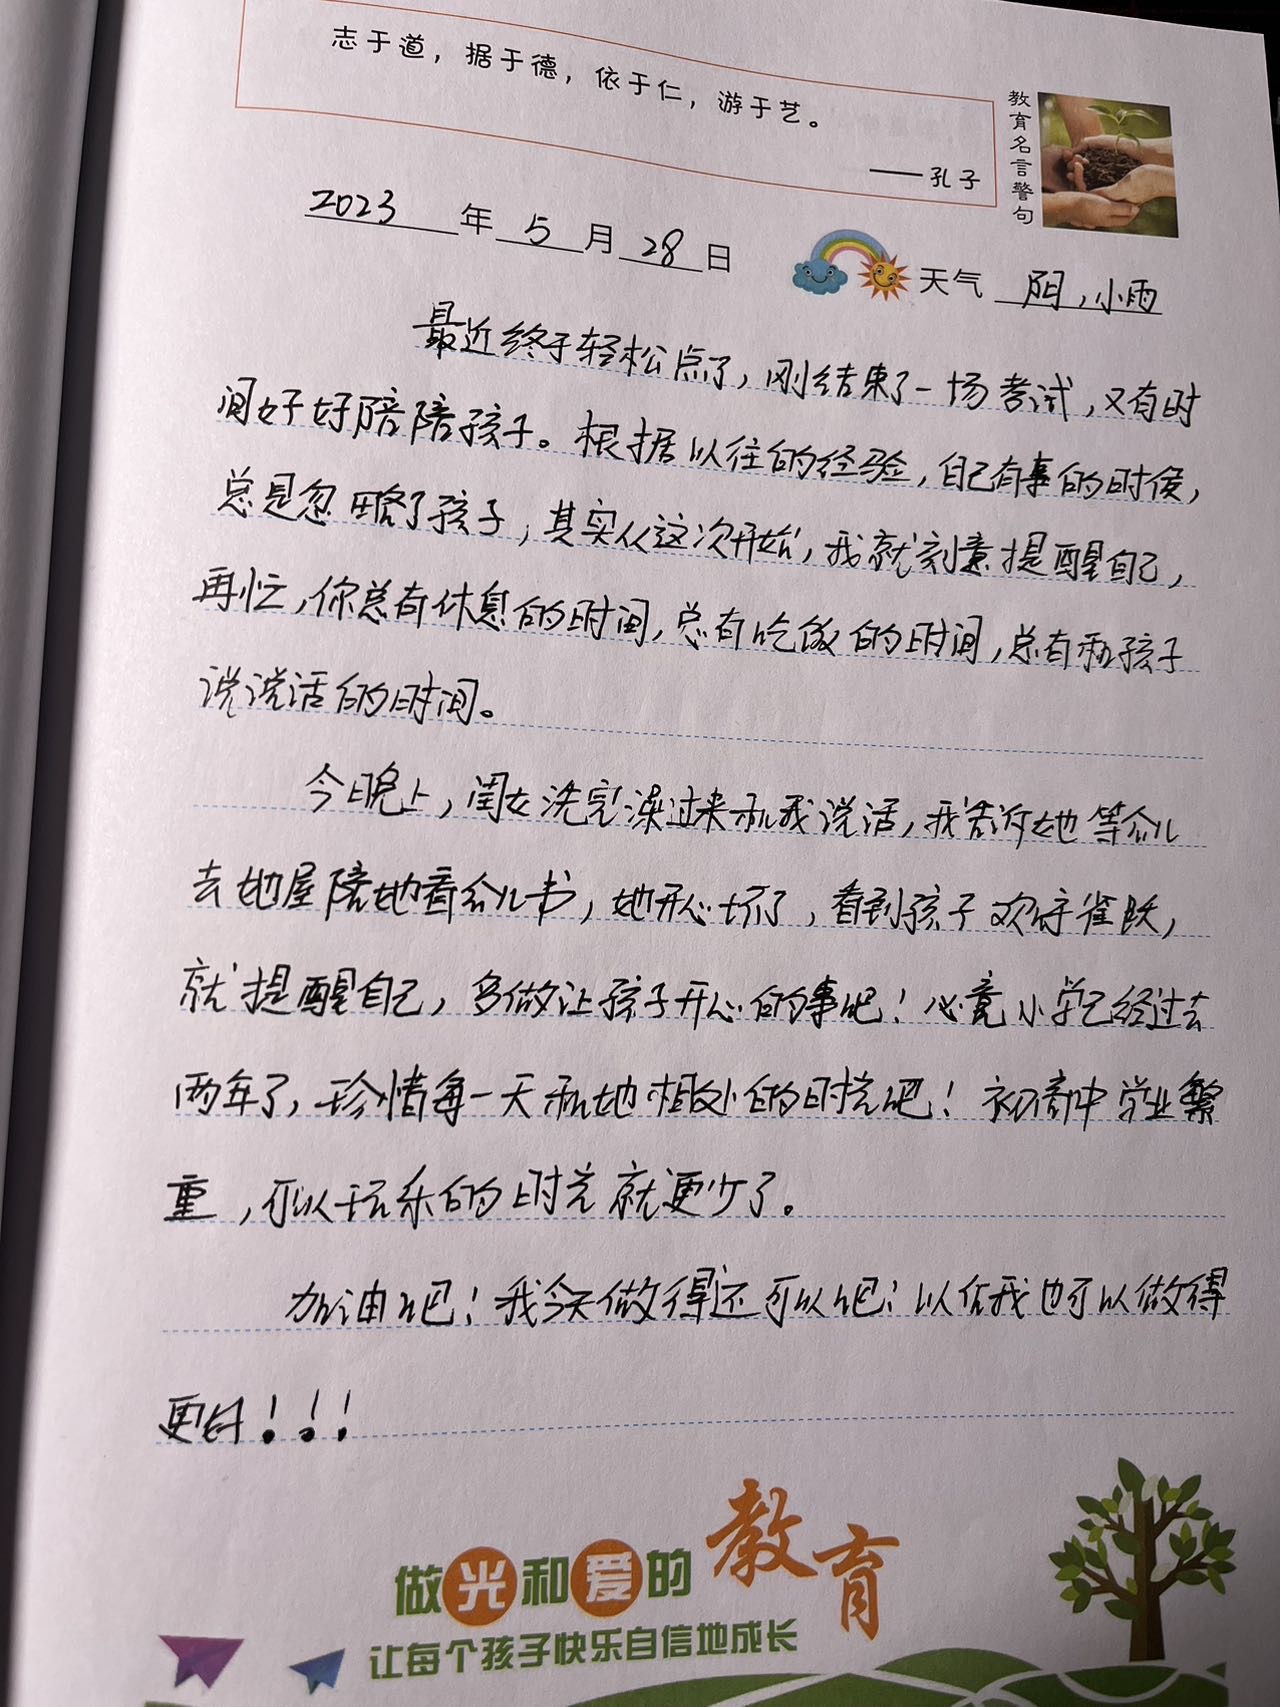 志于道，据于德，依于仁，游于艺。
——孔子
教育名言警句
2023年5月28日
天气 阴，小雨
最近终于轻松点了，刚结束了一场考试，又有时
间好好陪陪孩子。根据以往的经验，自己有事的时候，
总是忽略了孩子，其实从这次开始，我就刻意提醒自己，
再忙，你总有休息的时间，总有吃饭的时间，总有和孩子
说说话的时间。
今晚上，闺女洗完澡过来和我说话，我告诉她等会儿
去她屋陪她看会儿书，她开心坏了，看到孩子欢呼雀跃，
就提醒自己，多做让孩子开心的事吧！必竟小学已经过去
两年了，珍惜每一天和她相处的时光吧！初高中学业繁
重，可以玩乐的时光就更少了。
加油吧！我今天做得还可以吧！以后我也可以做得
更好！！！
做光和爱的教育
让每个孩子快乐自信地成长